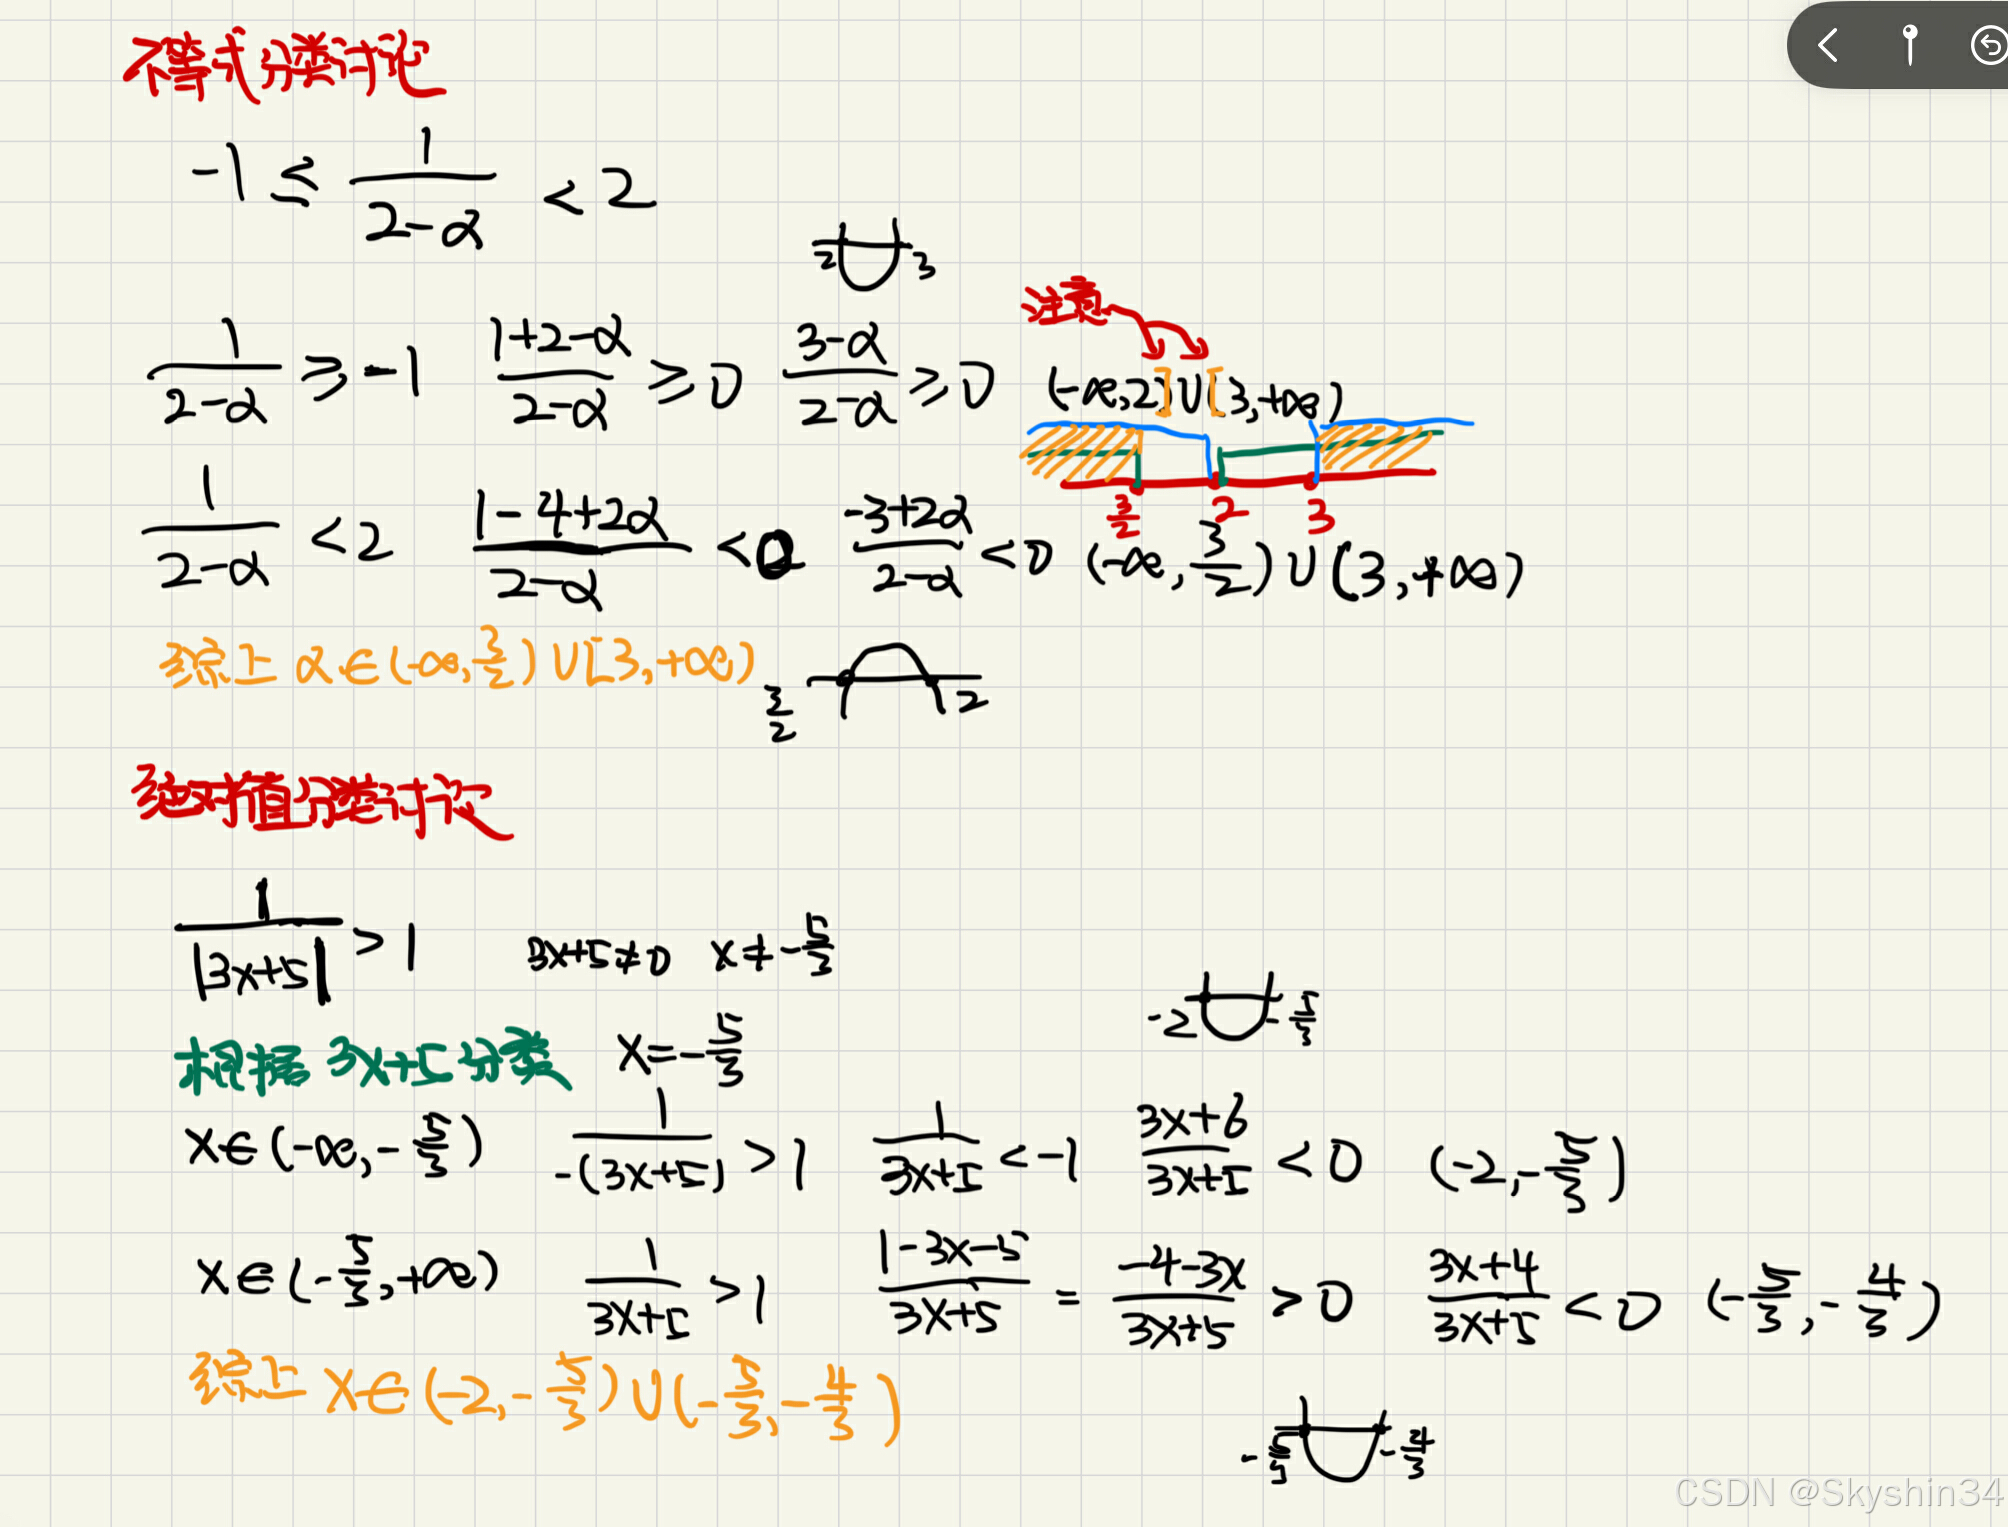 不等式分类讨论
-1 ≤ 1/(2-α) < 2
2 3
注意
1/(2-α) ≥ -1 (1+2-α)/(2-α) ≥ 0 (3-α)/(2-α) ≥ 0 (-∞,2]∪[3,+∞)
3/2 2 3
1/(2-α) < 2 (1-4+2α)/(2-α) < 0 (-3+2α)/(2-α) < 0 (-∞,3/2)∪(3,+∞)
综上 α∈(-∞,3/2)∪[3,+∞)
3/2 2
绝对值分类讨论
1/|3x+5| > 1 3x+5≠0 x≠-5/3
-2 -5/3
根据 3x+5 分类 x=-5/3
x∈(-∞,-5/3) 1/-(3x+5) > 1 1/(3x+5) < -1 (3x+6)/(3x+5) < 0 (-2,-5/3)
x∈(-5/3,+∞) 1/(3x+5) > 1 (1-3x-5)/(3x+5) = (-4-3x)/(3x+5) > 0 (3x+4)/(3x+5) < 0 (-5/3,-4/3)
综上 x∈(-2,-5/3)∪(-5/3,-4/3)
-5/3 -4/3
CSDN @Skyshin34